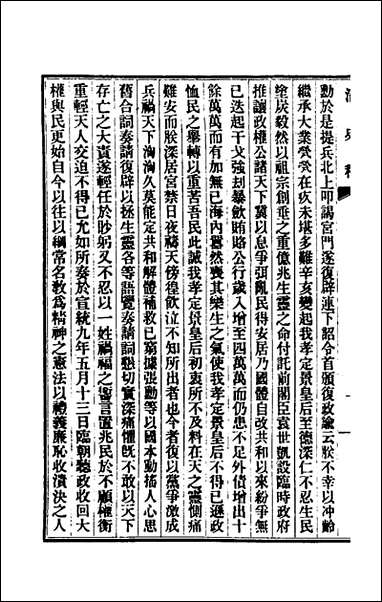 勳於是提兵北上叩謁宮門遂復辟連下詔令首頒復政諭云朕不幸以冲齡
繼承大業煢煢在疚未堪多難辛亥變起我孝定景皇后至德深仁不忍生民
塗炭毅然以祖宗創垂之重億兆生靈之命付託前閣臣袁世凱設臨時政府
推讓政權公諸天下冀以息爭弭亂民得安居乃國體自改共和以來紛爭無
已迭起干戈強劫暴斂賄賂公行歲入增至四萬萬而仍患不足外債增出十
餘萬萬而有加無已海內囂然喪其樂生之氣使我孝定景皇后不得已遜政
恤民之舉轉以重苦吾民此誠我孝定景皇后初衷所不及料在天之靈惻痛
難安而朕深居宮禁日夜禱天傍徨飲泣不知所出者也今者復以黨爭激成
兵禍天下洶洶久莫能定共和解體補救已窮據張勳等以國本動搖人心思
舊合詞奏請復辟以拯生靈各等語覽奏請詞懇切實深痛懼旣不敢以天下
存亡之大責遂輕任於眇躬又不忍以一姓禍福之瞽言置兆民於不顧權衡
重輕天人交迫不得已允如所奏於宣統九年五月十三日臨朝聽政收回大
權與民更始自今以往以綱常名教爲精神之憲法以禮義廉恥收潰決之人